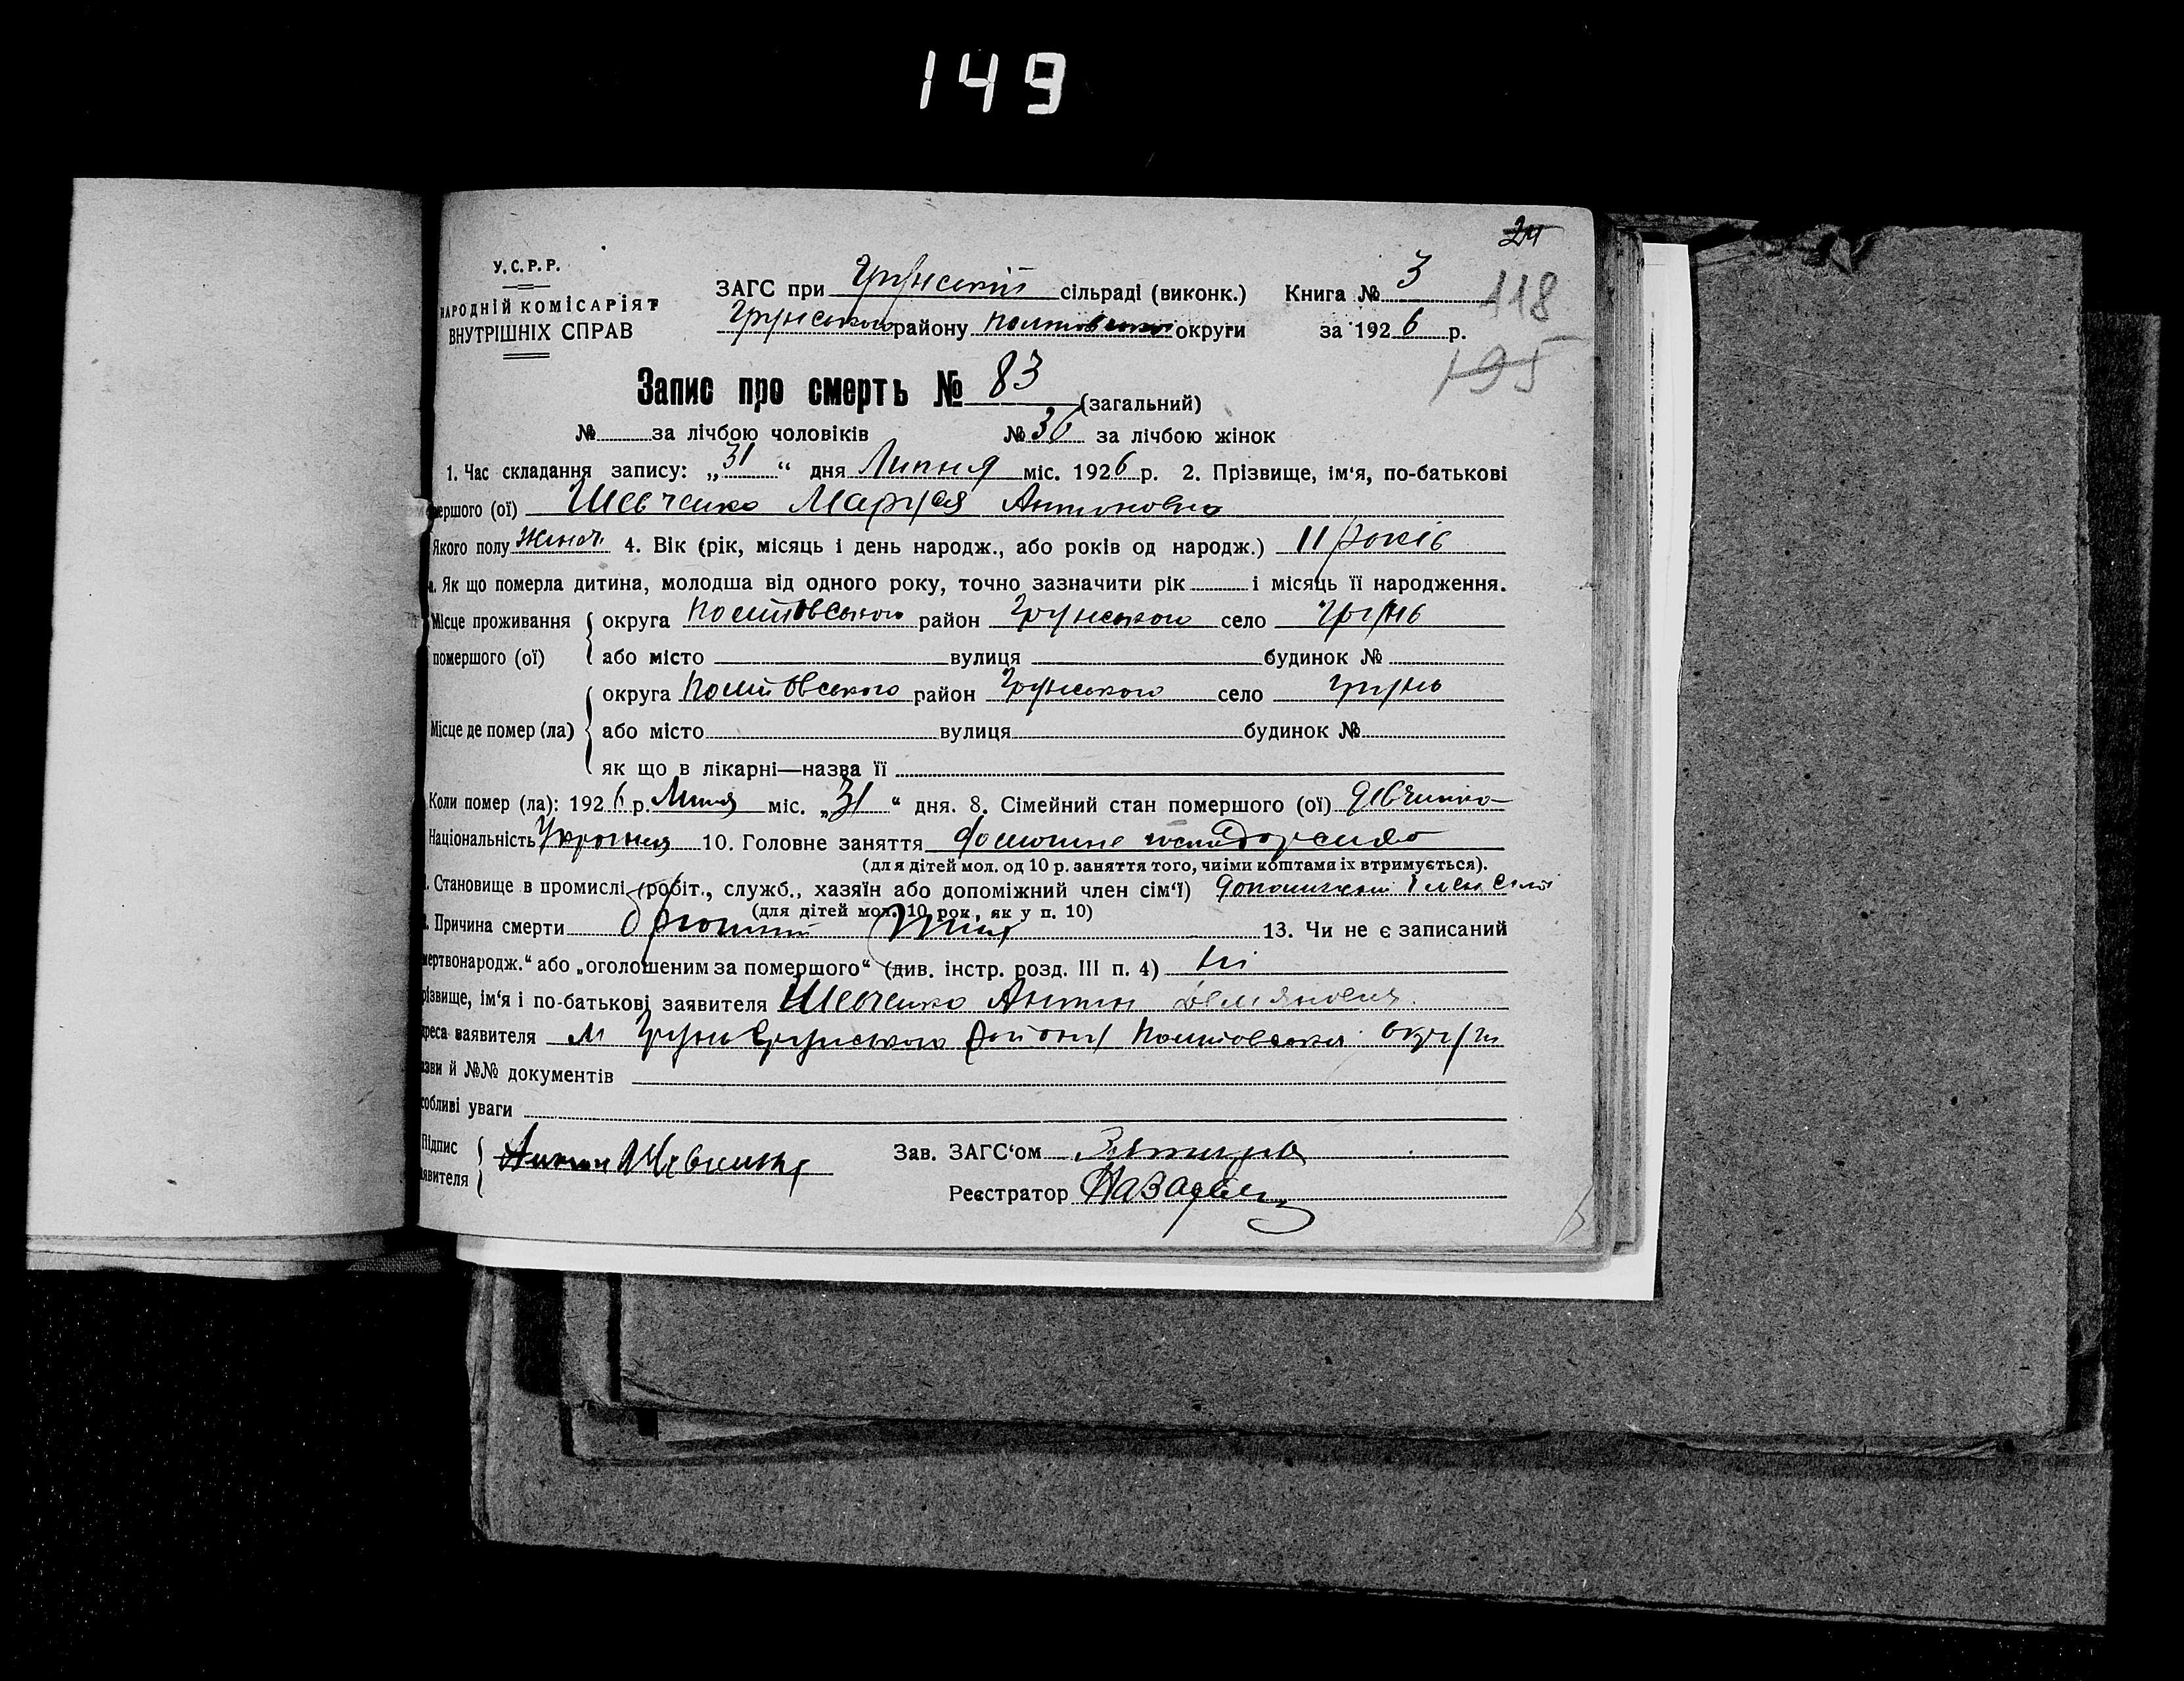 149
24
У.С.Р.Р.
НАРОДНІЙ КОМІСАРІЯТ
ВНУТРІШНІХ СПРАВ
ЗАГС при Грунській сільраді (виконк.) Книга № 3
118
Грунського району Полтавської округи за 1926 р.
195
Запис про смерть № 83 (загальний)
№ за лічбою чоловіків № 36 за лічбою жінок
1. Час складання запису: „31“ дня Липня міс. 1926 р. 2. Прізвище, ім‘я, по-батькові
мершого (ої) Шевченко Маруся Антоновна
Якого полу жіноч. 4. Вік (рік, місяць і день народж., або років од народж.) 11 років
а. Як що померла дитина, молодша від одного року, точно зазначити рік і місяць її народження.
Місце проживання округа Полтовського район Грунського село Грунь
помершого (ої) або місто вулиця будинок №
округа Полтовського район Грунського село Грунь
Місце де помер (ла) або місто вулиця будинок №
як що в лікарні—назва її
Коли помер (ла): 1926 р. Липня міс. „31“ дня. 8. Сімейний стан помершого (ої) дівчинка
Національність 10. Головне заняття домашне господарство
(для дітей мол. од 10 р. заняття того, чиїми коштами їх втримується).
Становище в промислі (робіт., служб., хазяїн або допоміжний член сім‘ї) допоміжний член сімї
(для дітей мол. 10 рок., як у п. 10)
Причина смерти Брюшний тиф 13. Чи не є записаний
мертвонародж.“ або „оголошеним за помершого“ (див. інстр. розд. III п. 4) ні
різвище, ім‘я і по-батькові заявителя Шевченко Антин Демянович
дреса заявителя м Грунь Грунського району Полтовської округи
азви й №№ документів
собливі уваги
Підпис Антон Шевченко Зав. ЗАГС‘ом
аявителя
Реєстратор